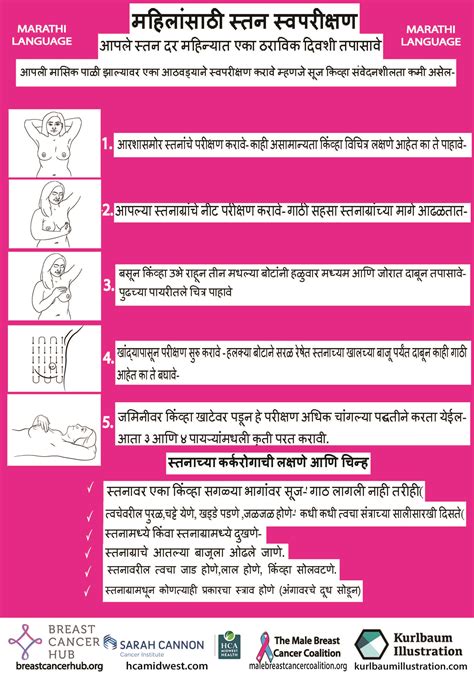 MARATHI
LANGUAGE
महिलांसाठी स्तन स्वपरीक्षण
MARATHI
LANGUAGE
आपले स्तन दर महिन्यात एका ठराविक दिवशी तपासावे
आपली मासिक पाळी झाल्यावर एका आठवड्याने स्वपरीक्षण करावे म्हणजे सूज किंवा संवेदनशीलता कमी असेल-
1. आरशासमोर स्तनांचे परीक्षण करावे-काही असामान्यता किंव्हा विचित्र लक्षणे आहेत का ते पाहावे-
2. आपल्या स्तनाग्रांचे नीट परीक्षण करावे- गाठी सहसा स्तनाग्रांच्या मागे आढळतात-
3. बसून किंव्हा उभे राहून तीन मधल्या बोटांनी हळुवार मध्यम आणि जोरात दाबून तपासावे-
पुढच्या पायरीतले चित्र पाहावे
4. खांद्यापासून परीक्षण सुरु करावे -हलक्या बोटाने सरळ रेषेत स्तनाच्या खालच्या बाजू पर्यंत दाबून काही गाठी
आहेत का ते बघावे-
5. जमिनीवर किंव्हा खाटेवर पडून हे परीक्षण अधिक चांगल्या पद्धतीने करता येईल-
आता ३ आणि ४ पायऱ्यांमधली कृती परत करावी.
स्तनाच्या कर्करोगाची लक्षणे आणि चिन्ह
स्तनावर एका किंव्हा सगळ्या भागांवर सूज- गाठ लागली नाही तरीही(
त्वचेवरील पुरळ,चट्टे येणे, खड्डे पडणे ,जळजळ होणे- कधी कधी त्वचा संत्राच्या सालीसारखी दिसते(
स्तनामध्ये किंवा स्तनाग्रामध्ये दुखणे-
स्तनाग्राचे आतल्या बाजूला ओढले जाणे.
स्तनावरील त्वचा जाड होणे,लाल होणे, किंव्हा सोलवटणे.
स्तनाग्रामधून कोणत्याही प्रकारचा स्त्राव होणे (अंगावरचे दूध सोडून)
BREAST
CANCER
HUB
breastcancerhub.org
SARAH CANNON
Cancer Institute
HCA
MIDWEST
HEALTH
hcamidwest.com
The Male Breast
Cancer Coalition
malebreastcancercoalition.org
Kurlbaum
Illustration
kurlbaumillustration.com